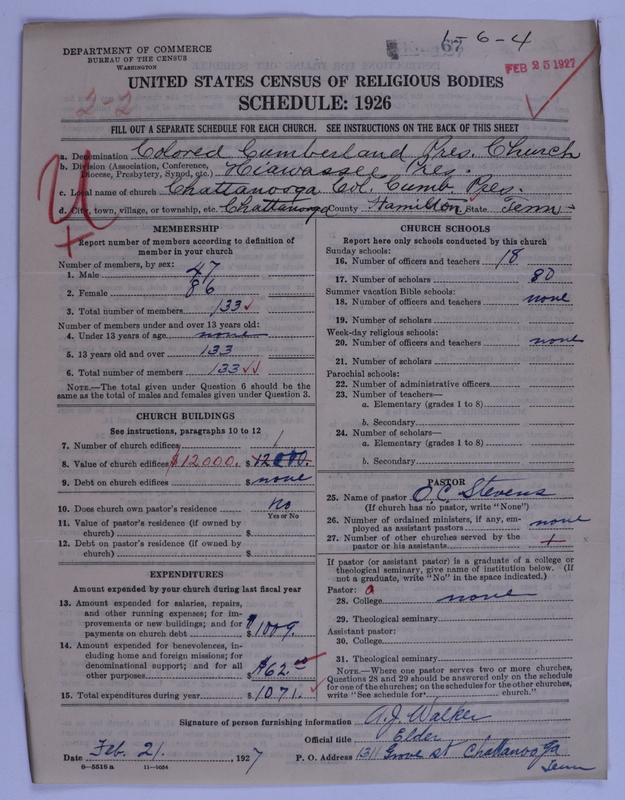 1-6-4
67
DEPARTMENT OF COMMERCE
BUREAU OF THE CENSUS
WASHINGTON
FEB 25 1927
UNITED STATES CENSUS OF RELIGIOUS BODIES
SCHEDULE: 1926
2-2
FILL OUT A SEPARATE SCHEDULE FOR EACH CHURCH. SEE INSTRUCTIONS ON THE BACK OF THIS SHEET
a. Denomination Colored Cumberland Pres. Church
b. Division (Association, Conference, Diocese, Presbytery, Synod, etc.) Hiawassee Pres.
c. Local name of church Chattanooga Col. Cumb. Pres.
d. City, town, village, or township, etc. Chattanooga County Hamilton State Tenn-
MEMBERSHIP
Report number of members according to definition of
member in your church
Number of members, by sex:
1. Male 47
2. Female 86
3. Total number of members 133 ✓
Number of members under and over 13 years old:
4. Under 13 years of age none
5. 13 years old and over 133
6. Total number of members 133 ✓✓
NOTE.—The total given under Question 6 should be the
same as the total of males and females given under Question 3.
CHURCH BUILDINGS
See instructions, paragraphs 10 to 12
7. Number of church edifices 1
8. Value of church edifices $12000. $ 12000.
9. Debt on church edifices $ none
10. Does church own pastor's residence no
Yes or No
11. Value of pastor's residence (if owned by
church) $
12. Debt on pastor's residence (if owned by
church) $
EXPENDITURES
Amount expended by your church during last fiscal year
13. Amount expended for salaries, repairs,
and other running expenses; for im-
provements or new buildings; and for
payments on church debt $ 1009.
14. Amount expended for benevolences, in-
cluding home and foreign missions; for
denominational support; and for all
other purposes $ $62.00
15. Total expenditures during year $ 1071. ✓
CHURCH SCHOOLS
Report here only schools conducted by this church
Sunday schools:
16. Number of officers and teachers 18
17. Number of scholars 80
Summer vacation Bible schools:
18. Number of officers and teachers none
19. Number of scholars
Week-day religious schools:
20. Number of officers and teachers none
21. Number of scholars
Parochial schools:
22. Number of administrative officers
23. Number of teachers—
a. Elementary (grades 1 to 8)
b. Secondary
24. Number of scholars—
a. Elementary (grades 1 to 8)
b. Secondary
PASTOR
25. Name of pastor O.C. Stevens
(If church has no pastor, write "None")
26. Number of ordained ministers, if any, em-
ployed as assistant pastors none
27. Number of other churches served by the
pastor or his assistants +
If pastor (or assistant pastor) is a graduate of a college or
theological seminary, give name of institution below. (If
not a graduate, write "No" in the space indicated.)
Pastor:
28. College none
29. Theological seminary
Assistant pastor:
30. College
31. Theological seminary
NOTE.—Where one pastor serves two or more churches,
Questions 28 and 29 should be answered only on the schedule
for one of the churches; on the schedules for the other churches,
write "See schedule for church."
Signature of person furnishing information A.J. Walker
Official title Elder
Date Feb. 21. , 1927 P. O. Address 1311 Grove st Chattanooga
Tenn
6—5516 a 11—9034